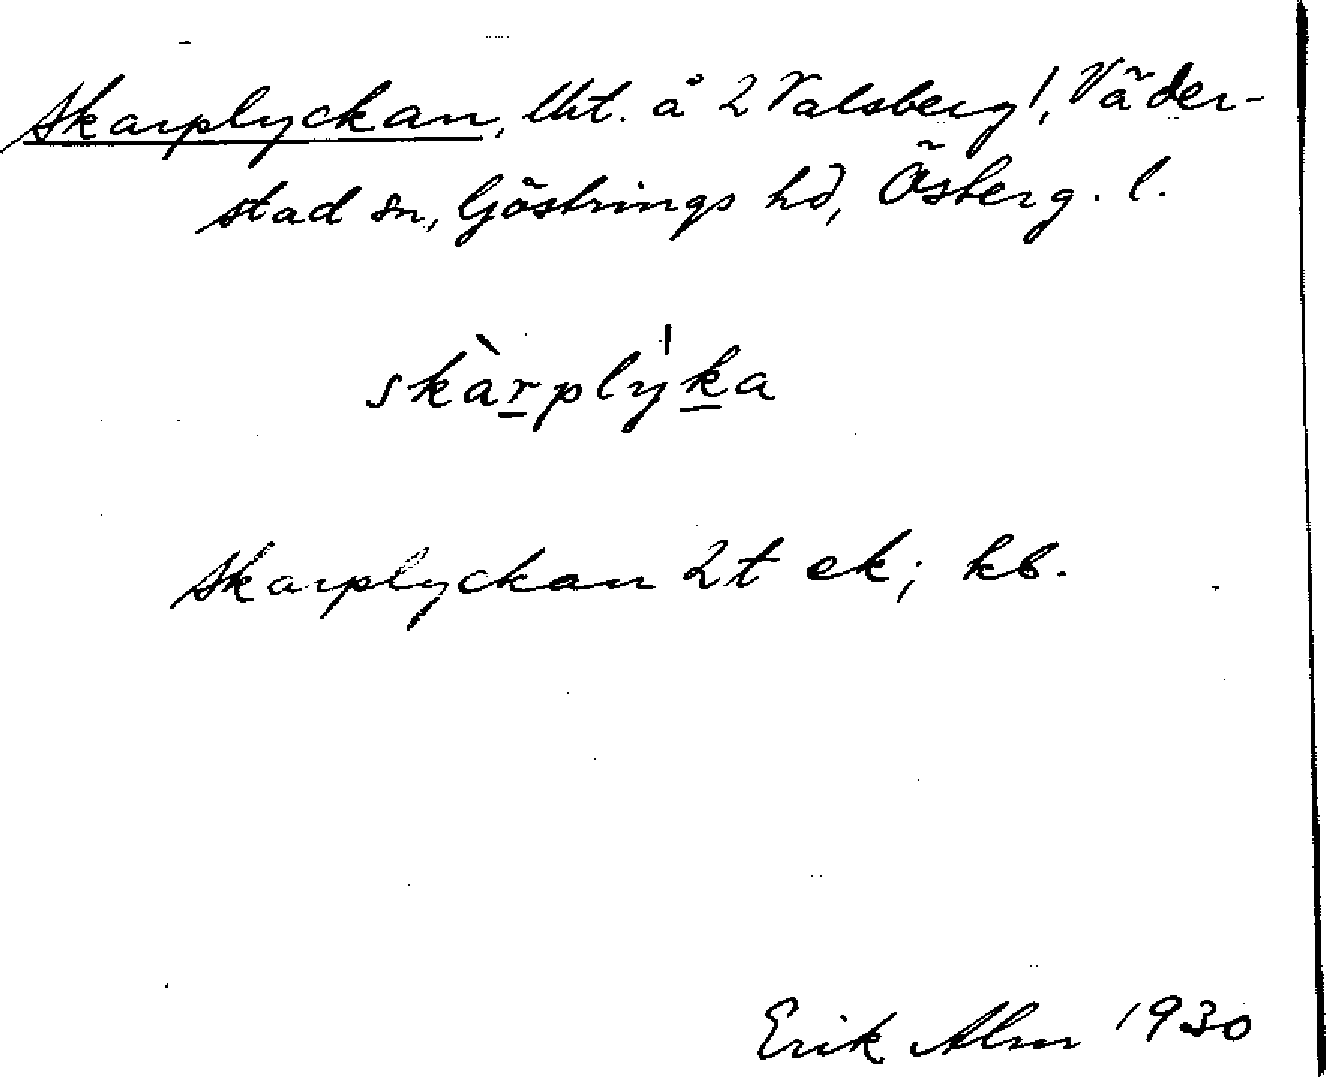 Skarplyckan, lht. å 2 Valsberg!, Väder-
stad sn, Göstrings hd, Österg. l.
skàrplỳka
Skarplyckan 2t ek; kb.
Erik Alm 1930